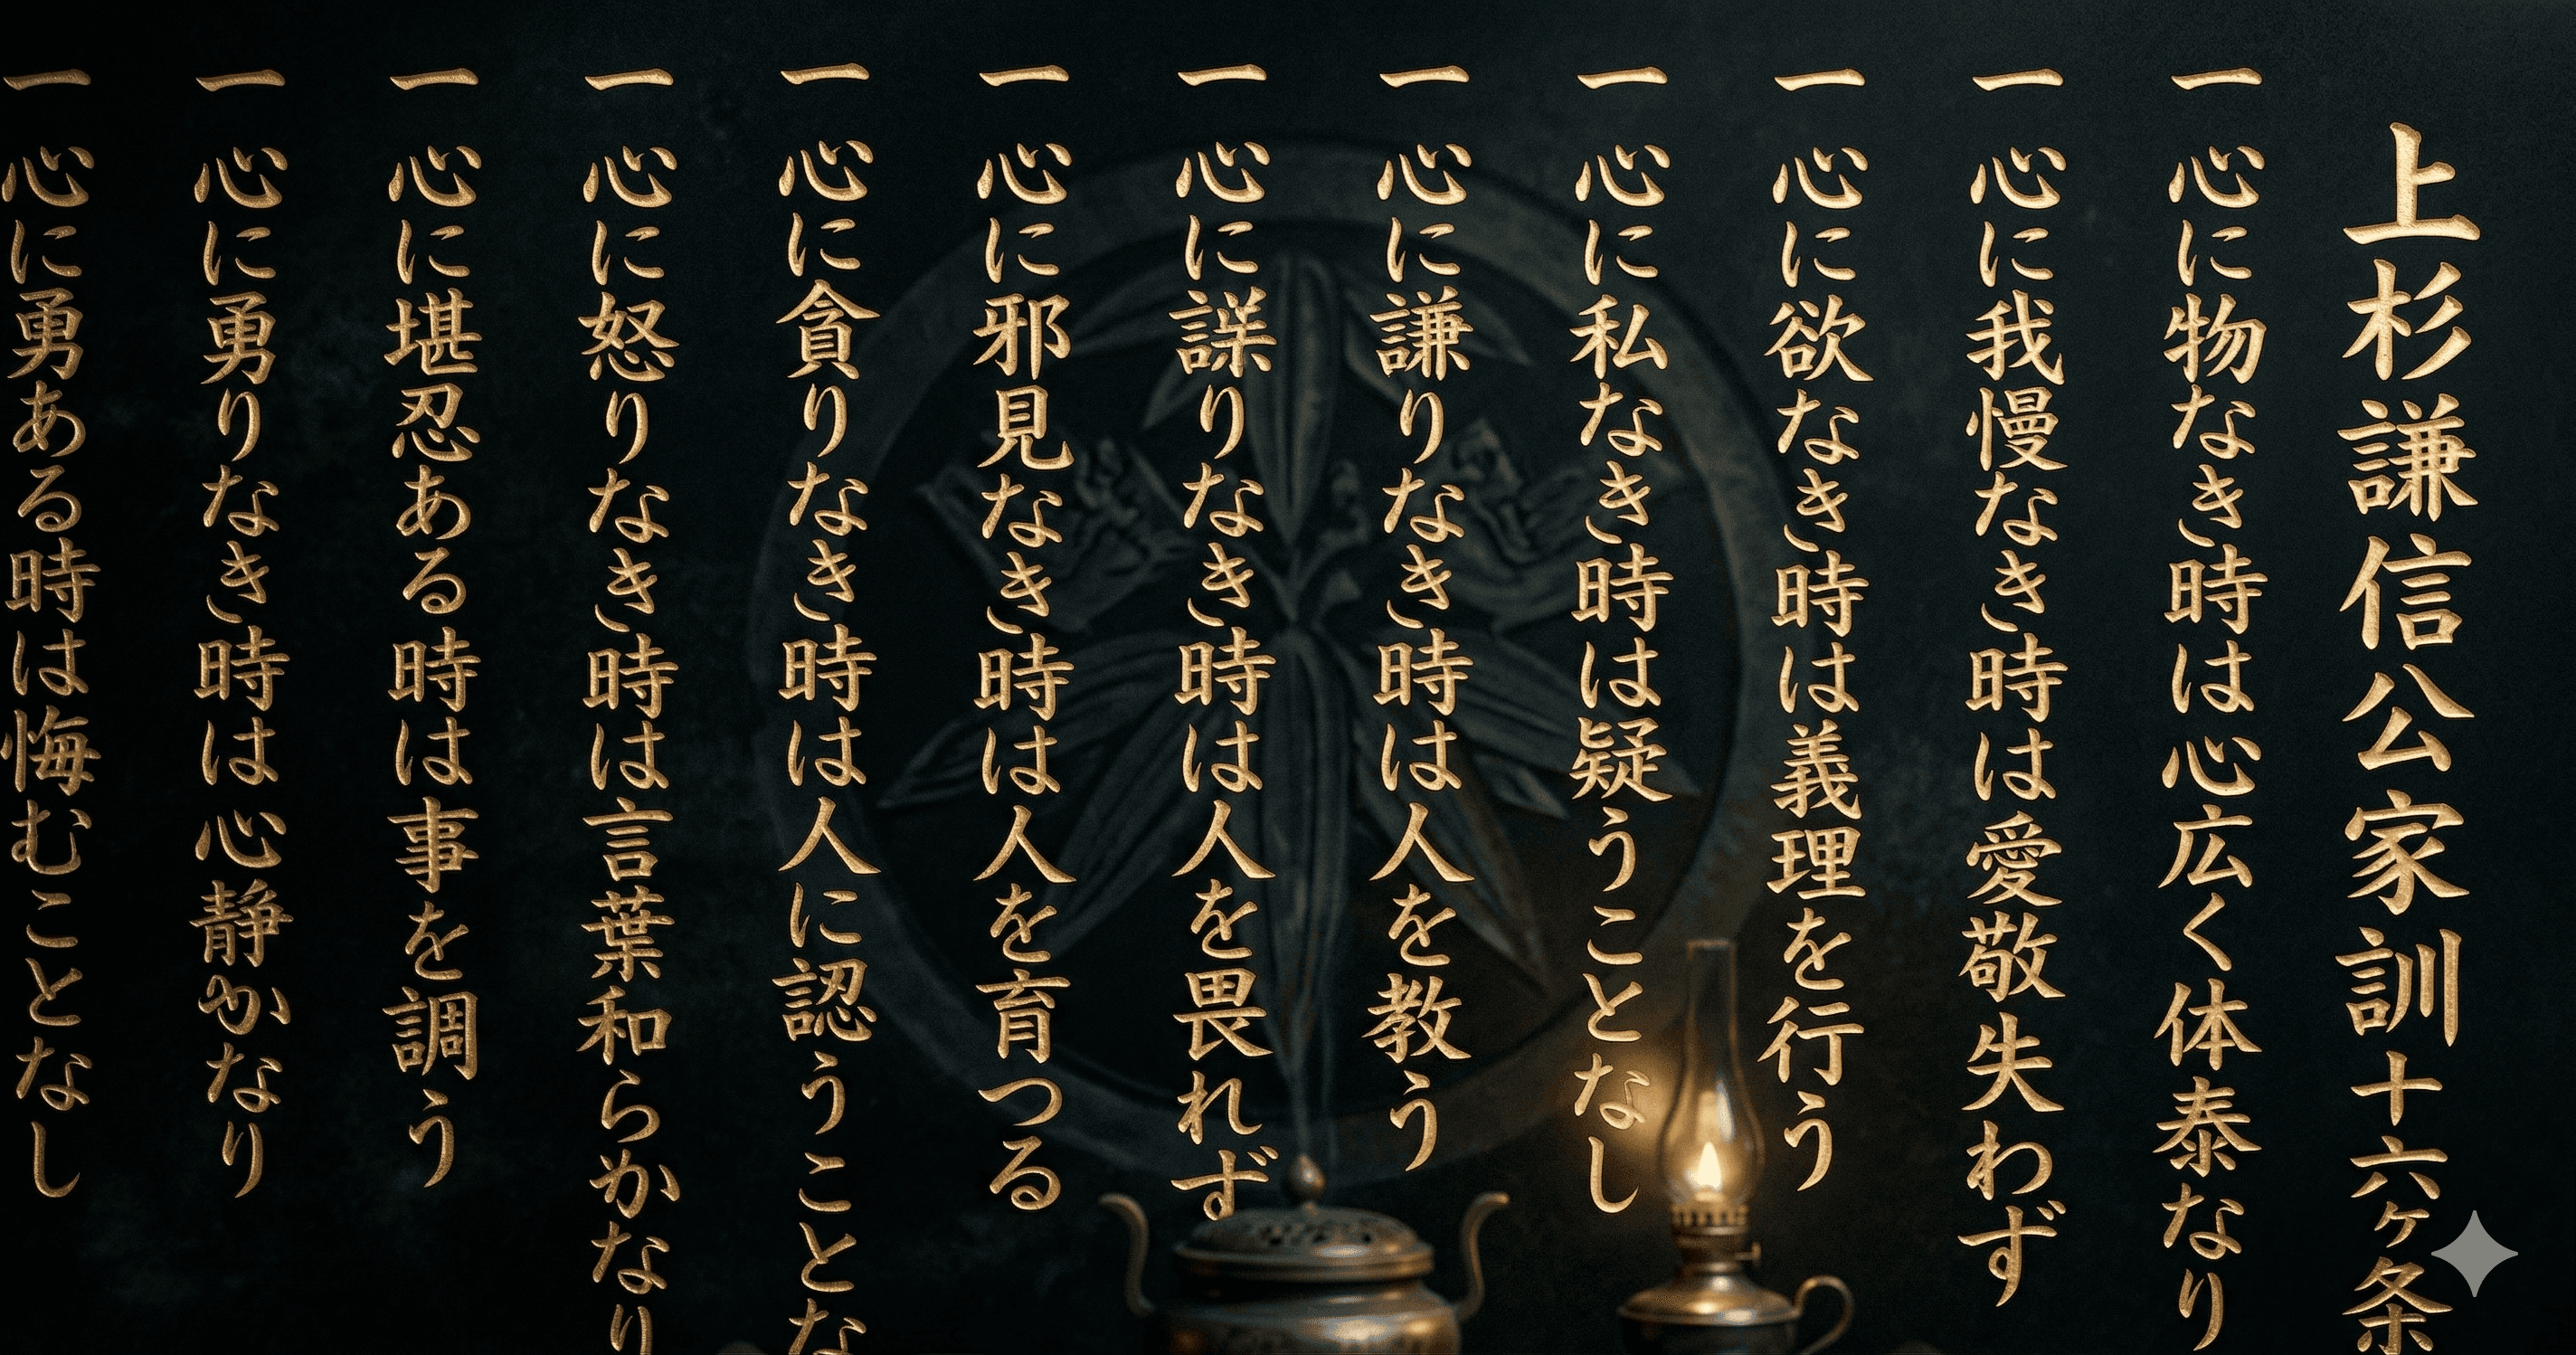 上杉謙信公家訓十六ヶ条
一 心に物なき時は心広く体泰なり
一 心に我慢なき時は愛敬失わず
一 心に欲なき時は義理を行う
一 心に私なき時は疑うことなし
一 心に謙りなき時は人を教う
一 心に誤りなき時は人を畏れず
一 心に邪見なき時は人を育つる
一 心に貪りなき時は人に認うことな
一 心に怒りなき時は言葉和らかなり
一 心に堪忍ある時は事を調う
一 心に勇りなき時は心静かなり
一 心に勇ある時は悔むことなし